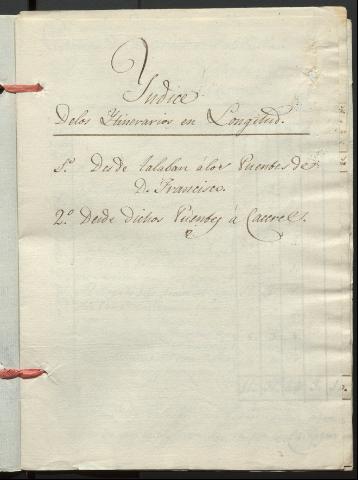 Yndice
Delos Ytinerarios en Longitud.
1.º Desde Talaban álos Puentes de
D. Francisco.
2.º Desde Dichos Puentes á Caceres.